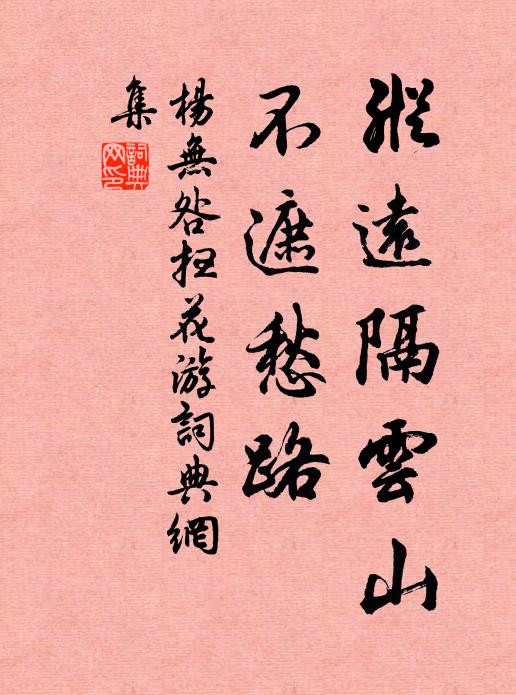 縱遠隔雲山
不遮愁路
楊無咎掃花游詞典網
集
詞典網印